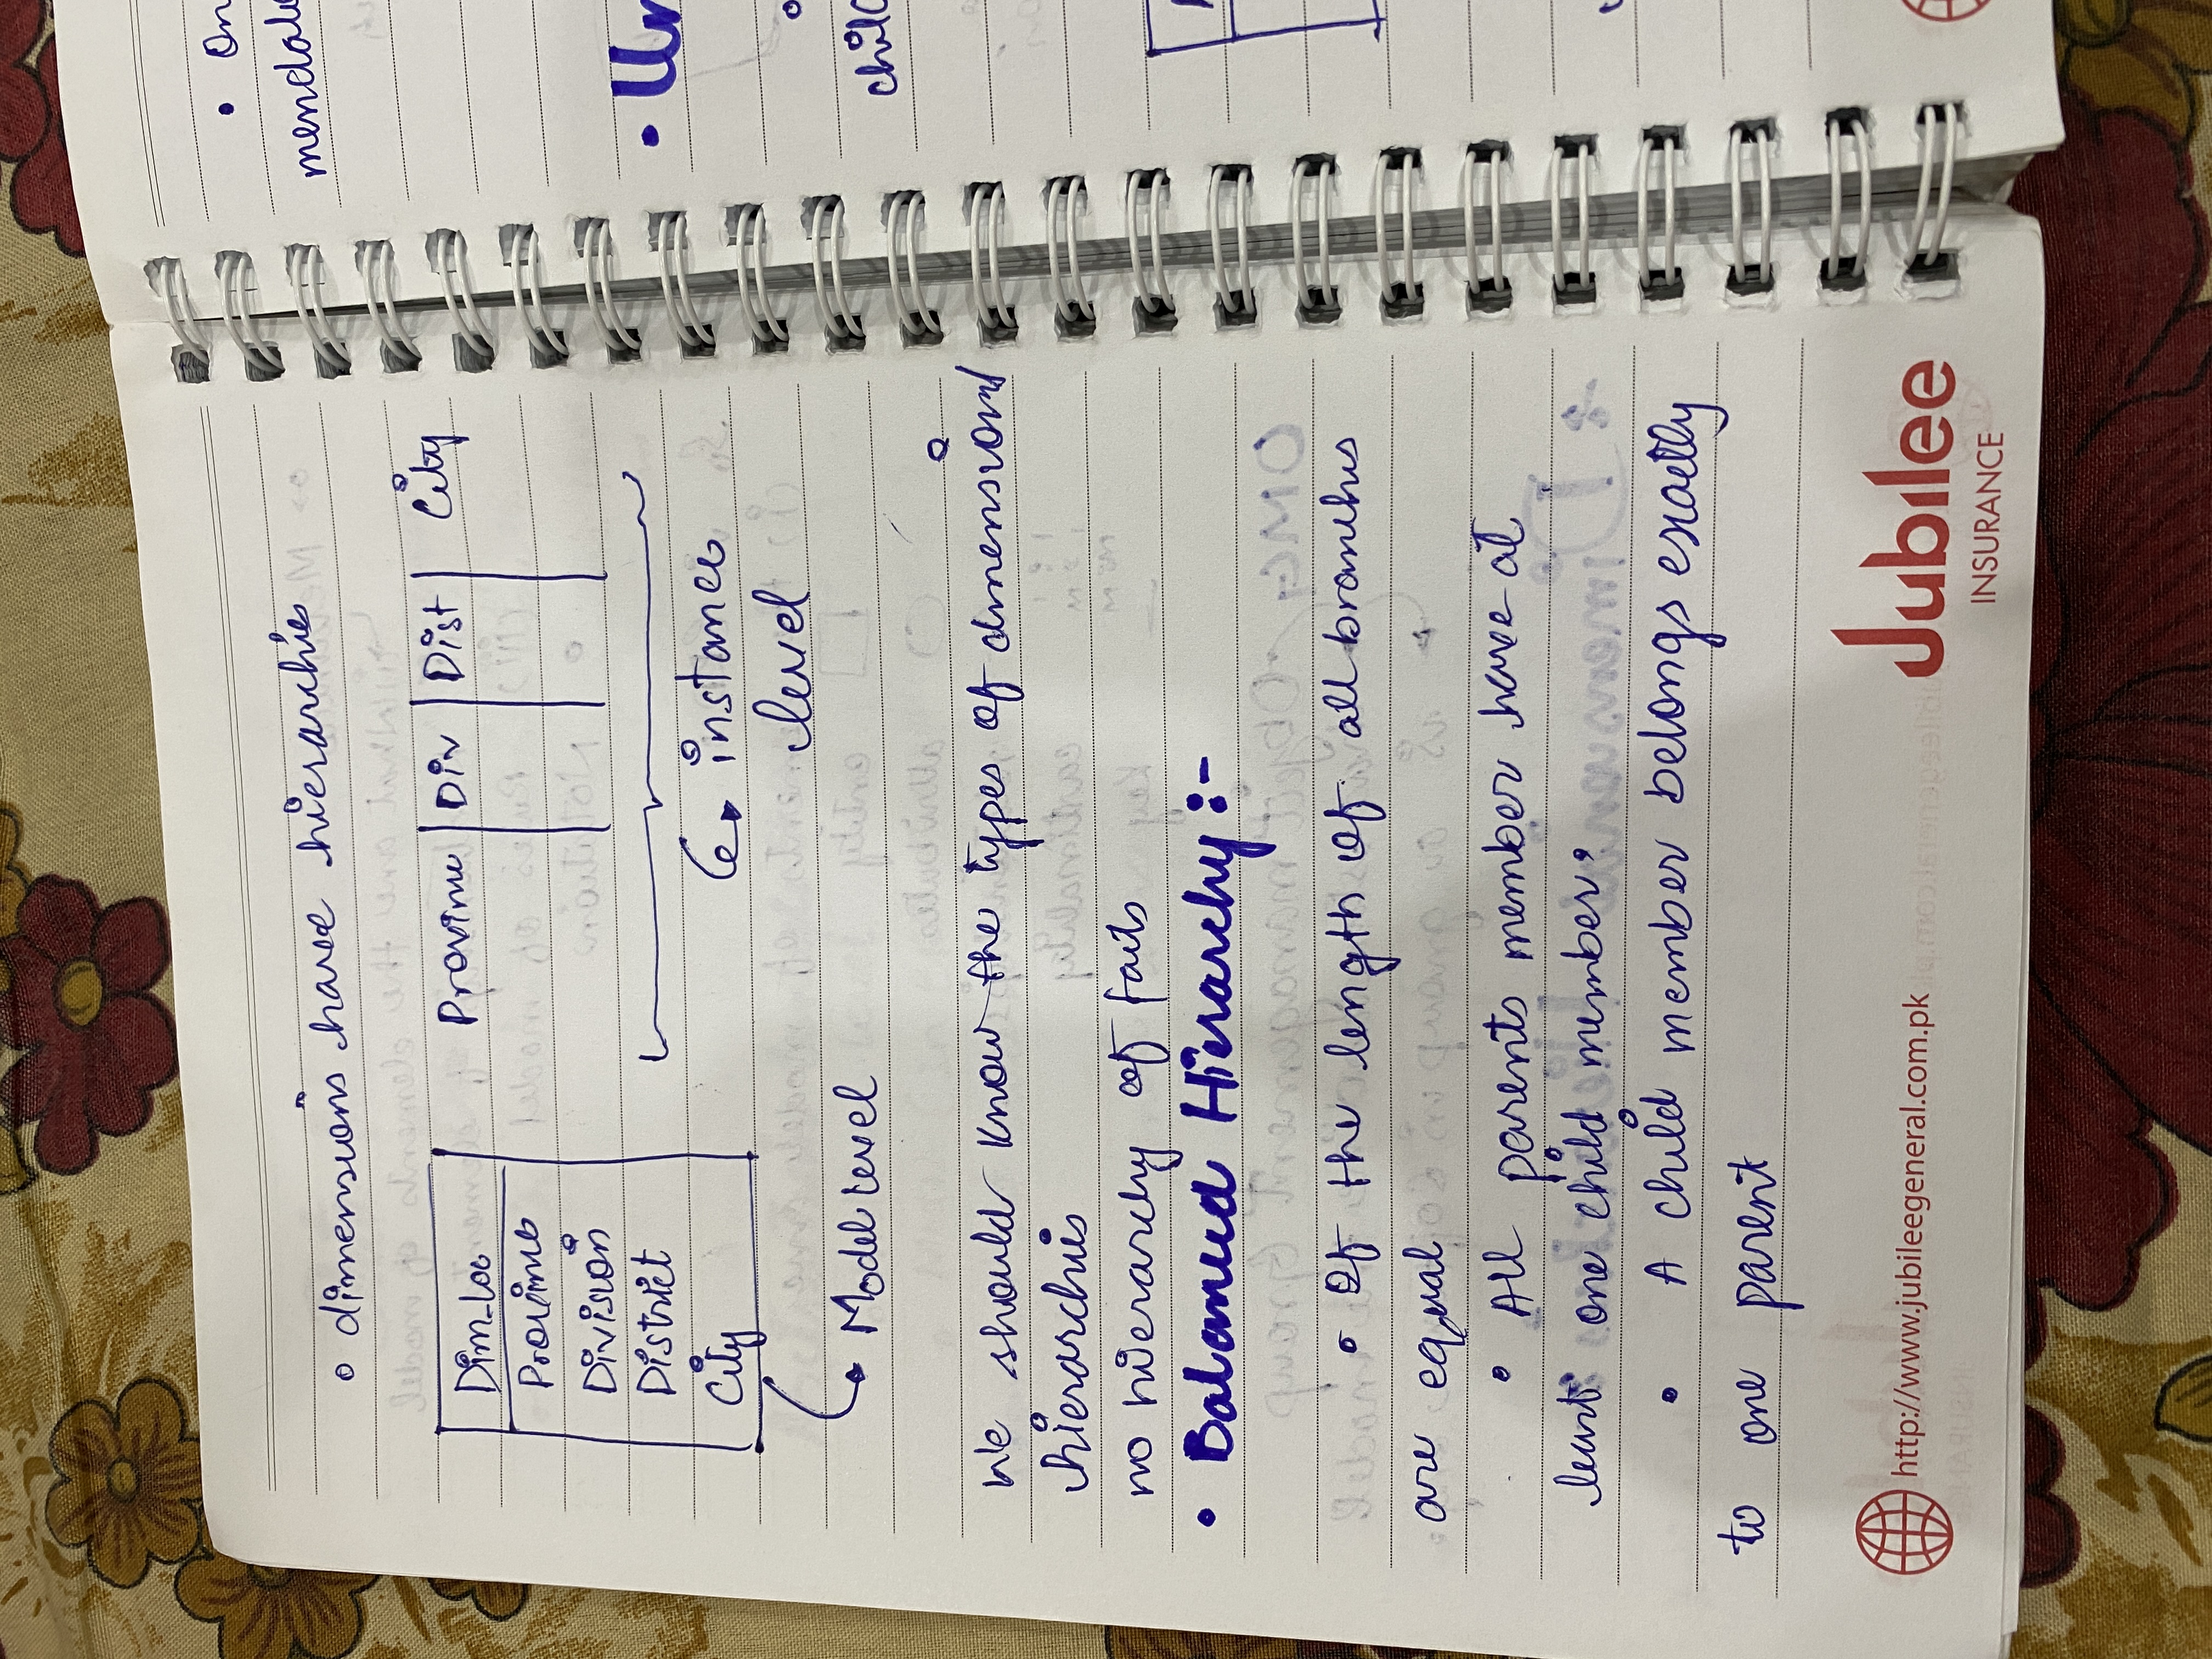 • dimensions have hierarchies
Dim_Loc
Province
Division
District
City
Province Div Dist City
instance
level
Model level
We should know the types of dimensional
hierarchies
no hierarchy of facts
• Balanced Hierarchy :-
• If the length of all branches
are equal
• All parents member have at
least one child member.
• A child member belongs exactly
to one parent
http://www.jubileegeneral.com.pk
Jubilee
INSURANCE
• On
• Un